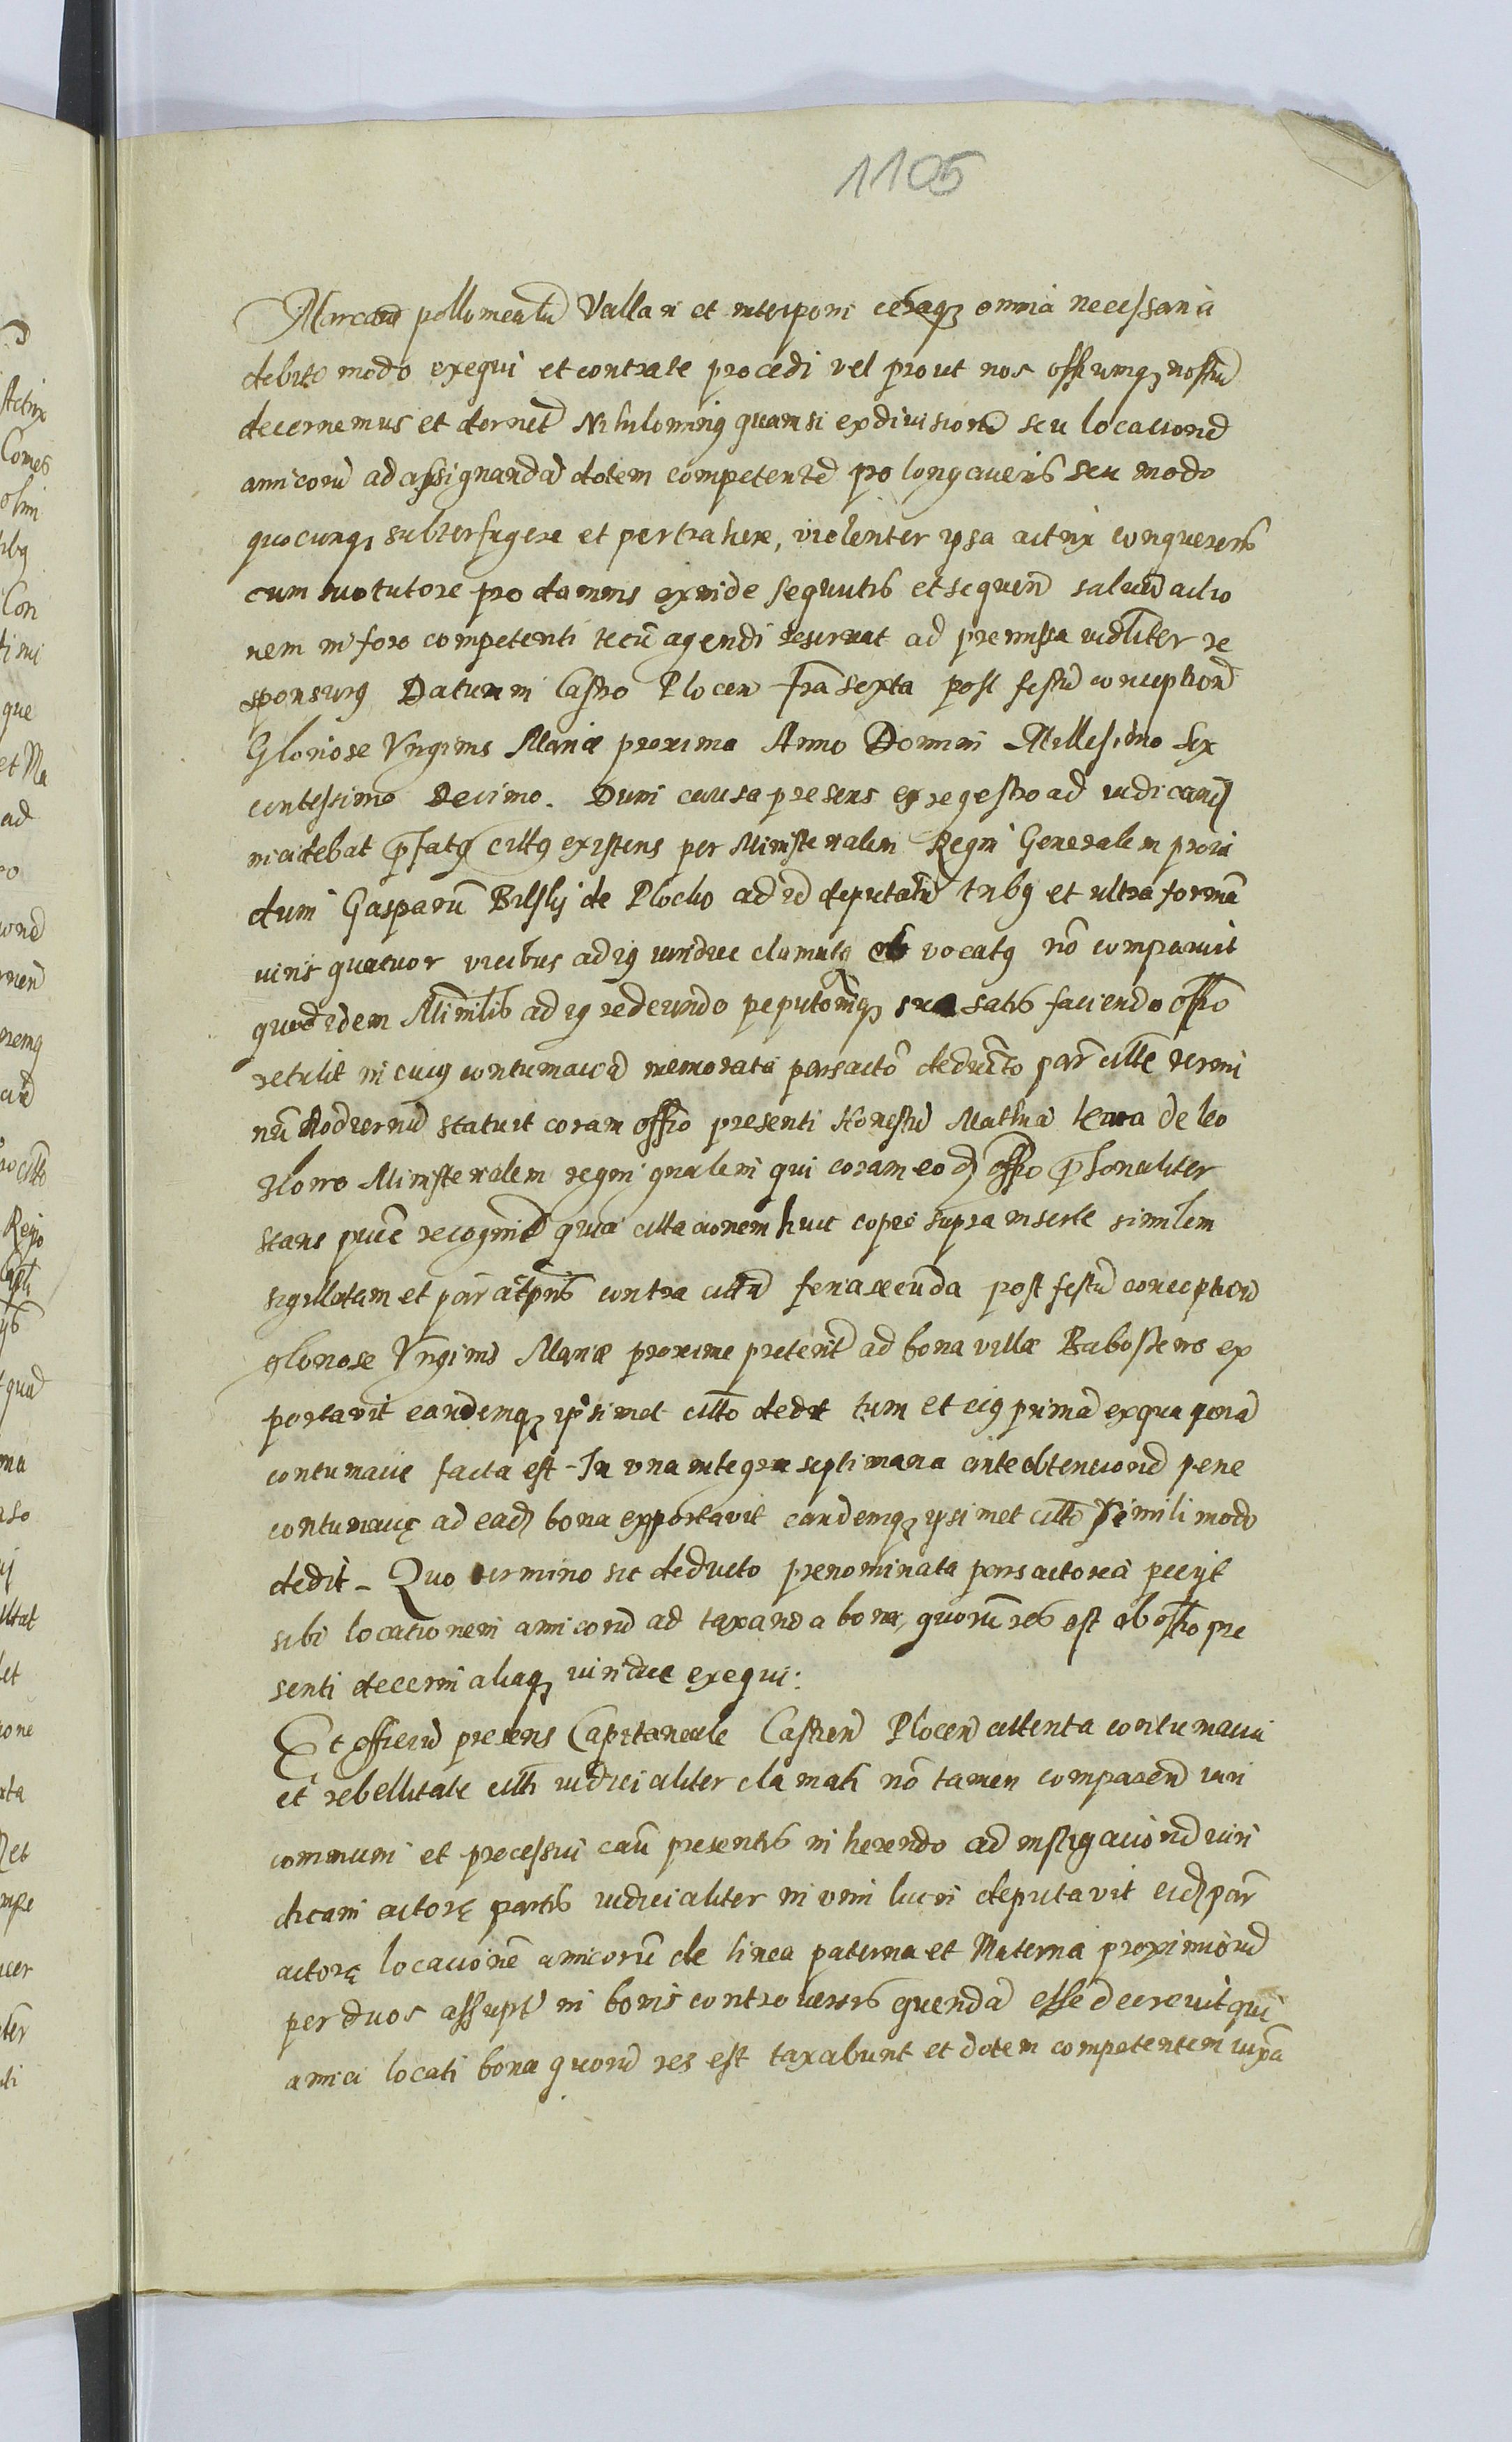 1105
Marcaru pollomeatu Vallari et interponi ceteraq omnia necessaria
debito modo exequi et contra te procedi vel prout nos offiumq nostru
decernemus et decernet Nihilominq quam si ex divisione seu locacione
amicoru ad assignanda dotem competente pro longaveris seu modo
quocunq subterfugere et pertrahere, violenter ipsa actrix conquereris
cum suo tutore pro damnis exinde sequutis et sequen salva actio
nem in foro competenti tecu agendi reservat ad premissa iudliter re
sponsurq Datum in Castro Plocen fria sexta post festu conception
Gloriose Virginis Mariæ proxima Anno Domini Millesimo Sex
centessimo Decimo. Dum causa presens ex regestro ad iudicand
incidebat pfatq cittq existens per Ministerialem Regni Generalem provi
dum Gasparu Bilsky de Plocko ad id deputatu tribq et ultra forma
iuris quatuor vicibus ad iq iuridice clamatq et vocatq no comparuit
quod idem Minlis ad iq redeundo peputoniq sua satis faciendo offo
retulit in cuiq contumacia memorata pars acto deducto par citte termi
nu hodiernu statuit coram offo presenti Honestu Mathia de
Ministerialem regni gnalem qui coram eod offo psonaliter
stans puce recognit quia citacionem huic copie supra inserte similem
sigillatam et par citpnis contra cittu feria secunda post festu conception
gloriose Virginis Mariæ proxime preterit ad bona villæ Baboszewo ex
portavit eandemq ipsimet citto dedit tum et eiq prima ex qua pena
contumacie facta est - In una integra septimana ante obtencione pene
contumacie ad ead bona exportavit eandemq ipsimet citto simili modo
dedit - Quo termino sic deducto prenominata pars actorea peciit
sibi locationem amicoru ad taxanda bona, quoru res est ab offo pre
senti decerni aliaq iuridice exequi:
Et officiu presens Capitaneale Castren Plocen attenta contumacia
et rebellitate citti iudicialiter clamati no tamen comparen iuri
communi et processui cau presentis inherendo ad instigacione iuri
dicam actore partis iudicialiter in vim lucri deputavit eid par
actore locacione amicoru de linea paterna et Materna proximioru
per duos assupt in bonis controversis quenda esse decrevit qui
amici locati bona quoru res est taxabunt et dotem competentem iuxa